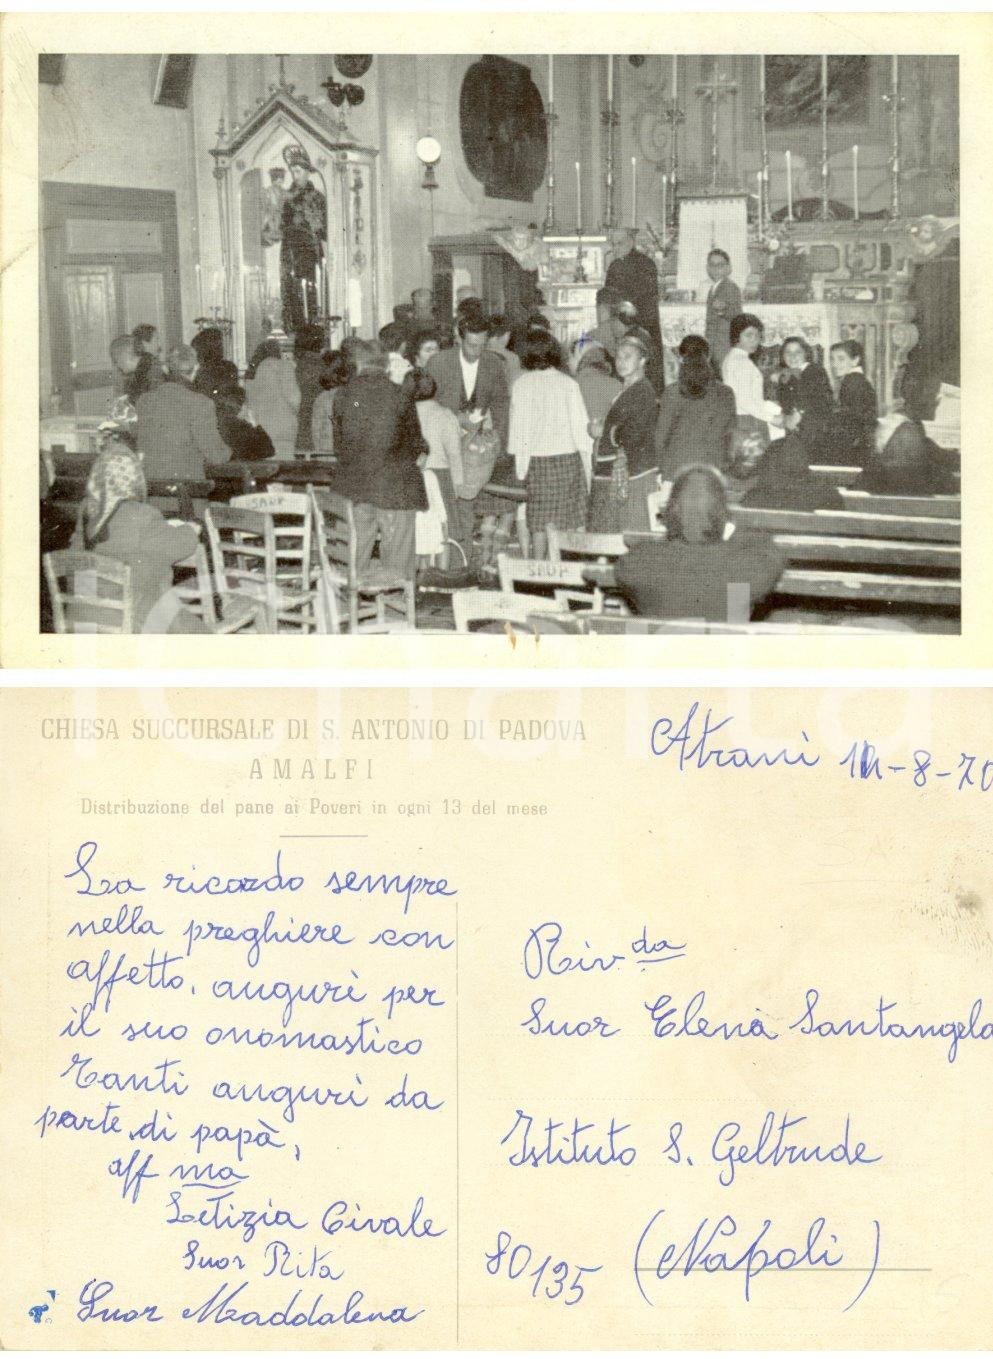 SAUP
SAUP
CHIESA SUCCURSALE DI S. ANTONIO DI PADOVA
AMALFI
Distribuzione del pane ai Poveri in ogni 13 del mese
Atrani 11-8-70
La ricordo sempre
nella preghiere con
affetto, augurì per
il suo onomastico
Tanti augurì da
parte di papà,
aff ma
Letizia Civale
Suor Rita
Suor Maddalena
Riv. da
Suor Elena Santangelo
Istituto S. Geltrude
80135 (Napoli)